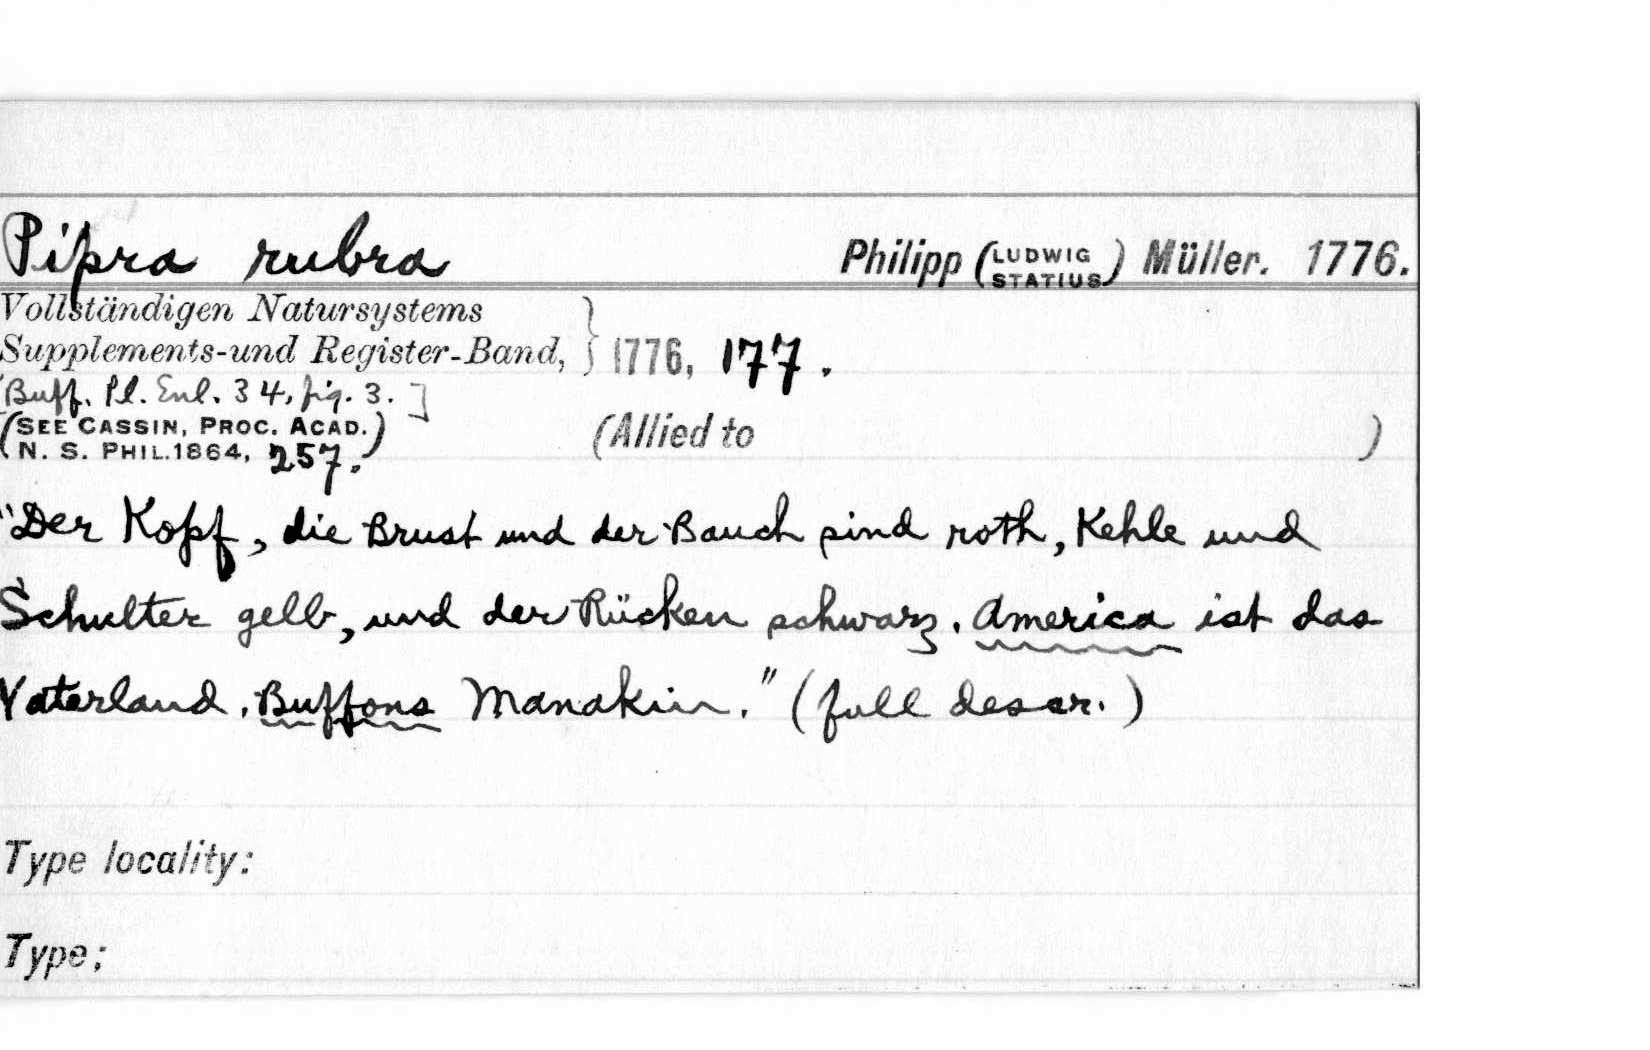 Pipra rubra Philipp (LUDWIG STATIUS) Müller. 1776.
Vollständigen Natursystems
Supplements-und Register-Band, } 1776, 177.
[Buff. Pl. Enl. 34, fig. 3.]
(SEE CASSIN, PROC. ACAD.
N. S. PHIL. 1864, 257.) (Allied to )
"Der Kopf, die Brust und der Bauch sind roth, Kehle und
Schulter gelb, und der Rücken schwarz. America ist das
Vaterland. Buffons Manakin." (full descr.)
Type locality:
Type;